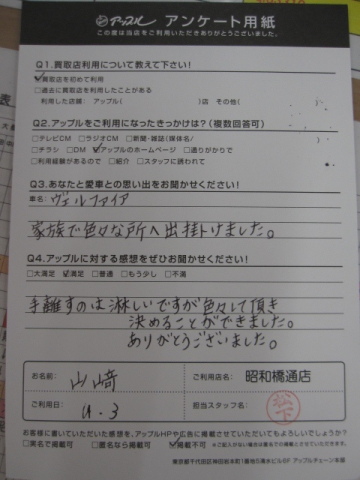 アップル アンケート用紙
この度は当店をご利用いただきありがとうございました。
Q1.買取店利用について教えて下さい!
☑買取店を初めて利用
□過去に買取店を利用したことがある
利用した店舗: アップル( )店 その他( )
Q2.アップルをご利用になったきっかけは?(複数回答可)
□テレビCM □ラジオCM □新聞・雑誌(媒体名/ )
□チラシ □DM ☑アップルのホームページ □通りがかりで
□利用経験があるので □紹介 □スタッフに誘われて
Q3.あなたと愛車との思い出をお聞かせください!
車名: ヴェルファイア
家族で色々な所へ出掛けました。
Q4.アップルに対する感想をぜひお聞かせください!
□大満足 ☑満足 □普通 □もう少し □不満
手離すのは淋しいですが色々して頂き
決めることができました。
ありがとうございました。
お名前: 山﨑
ご利用店名: 昭和橋通店
ご利用日: 4.3
担当スタッフ名: 松下
お客様に書いていただいた感想を、アップルHPや広告に掲載させていただいてもよろしいでしょうか?
□実名で掲載可 □匿名なら掲載可 ☑掲載不可 ※ご記入がない場合は匿名での掲載とさせていただきます。
東京都千代田区神田鍛冶町1番地5清水ビル6F アップルチェーン本部